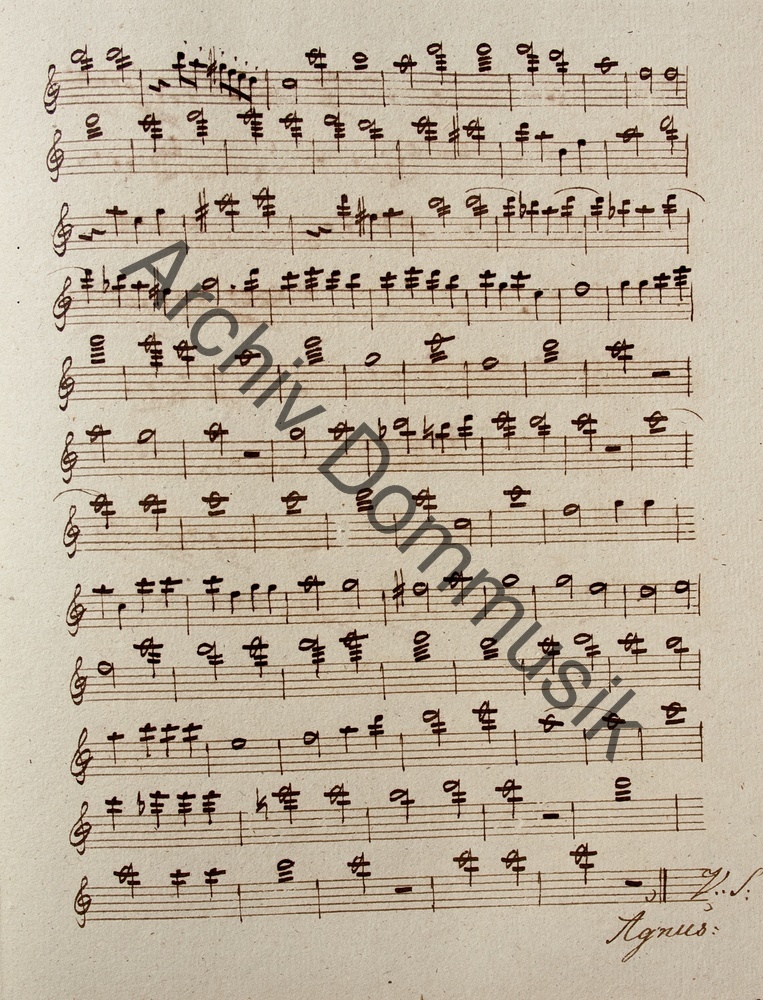 Archiv Dommusik
V. S:
Agnus: